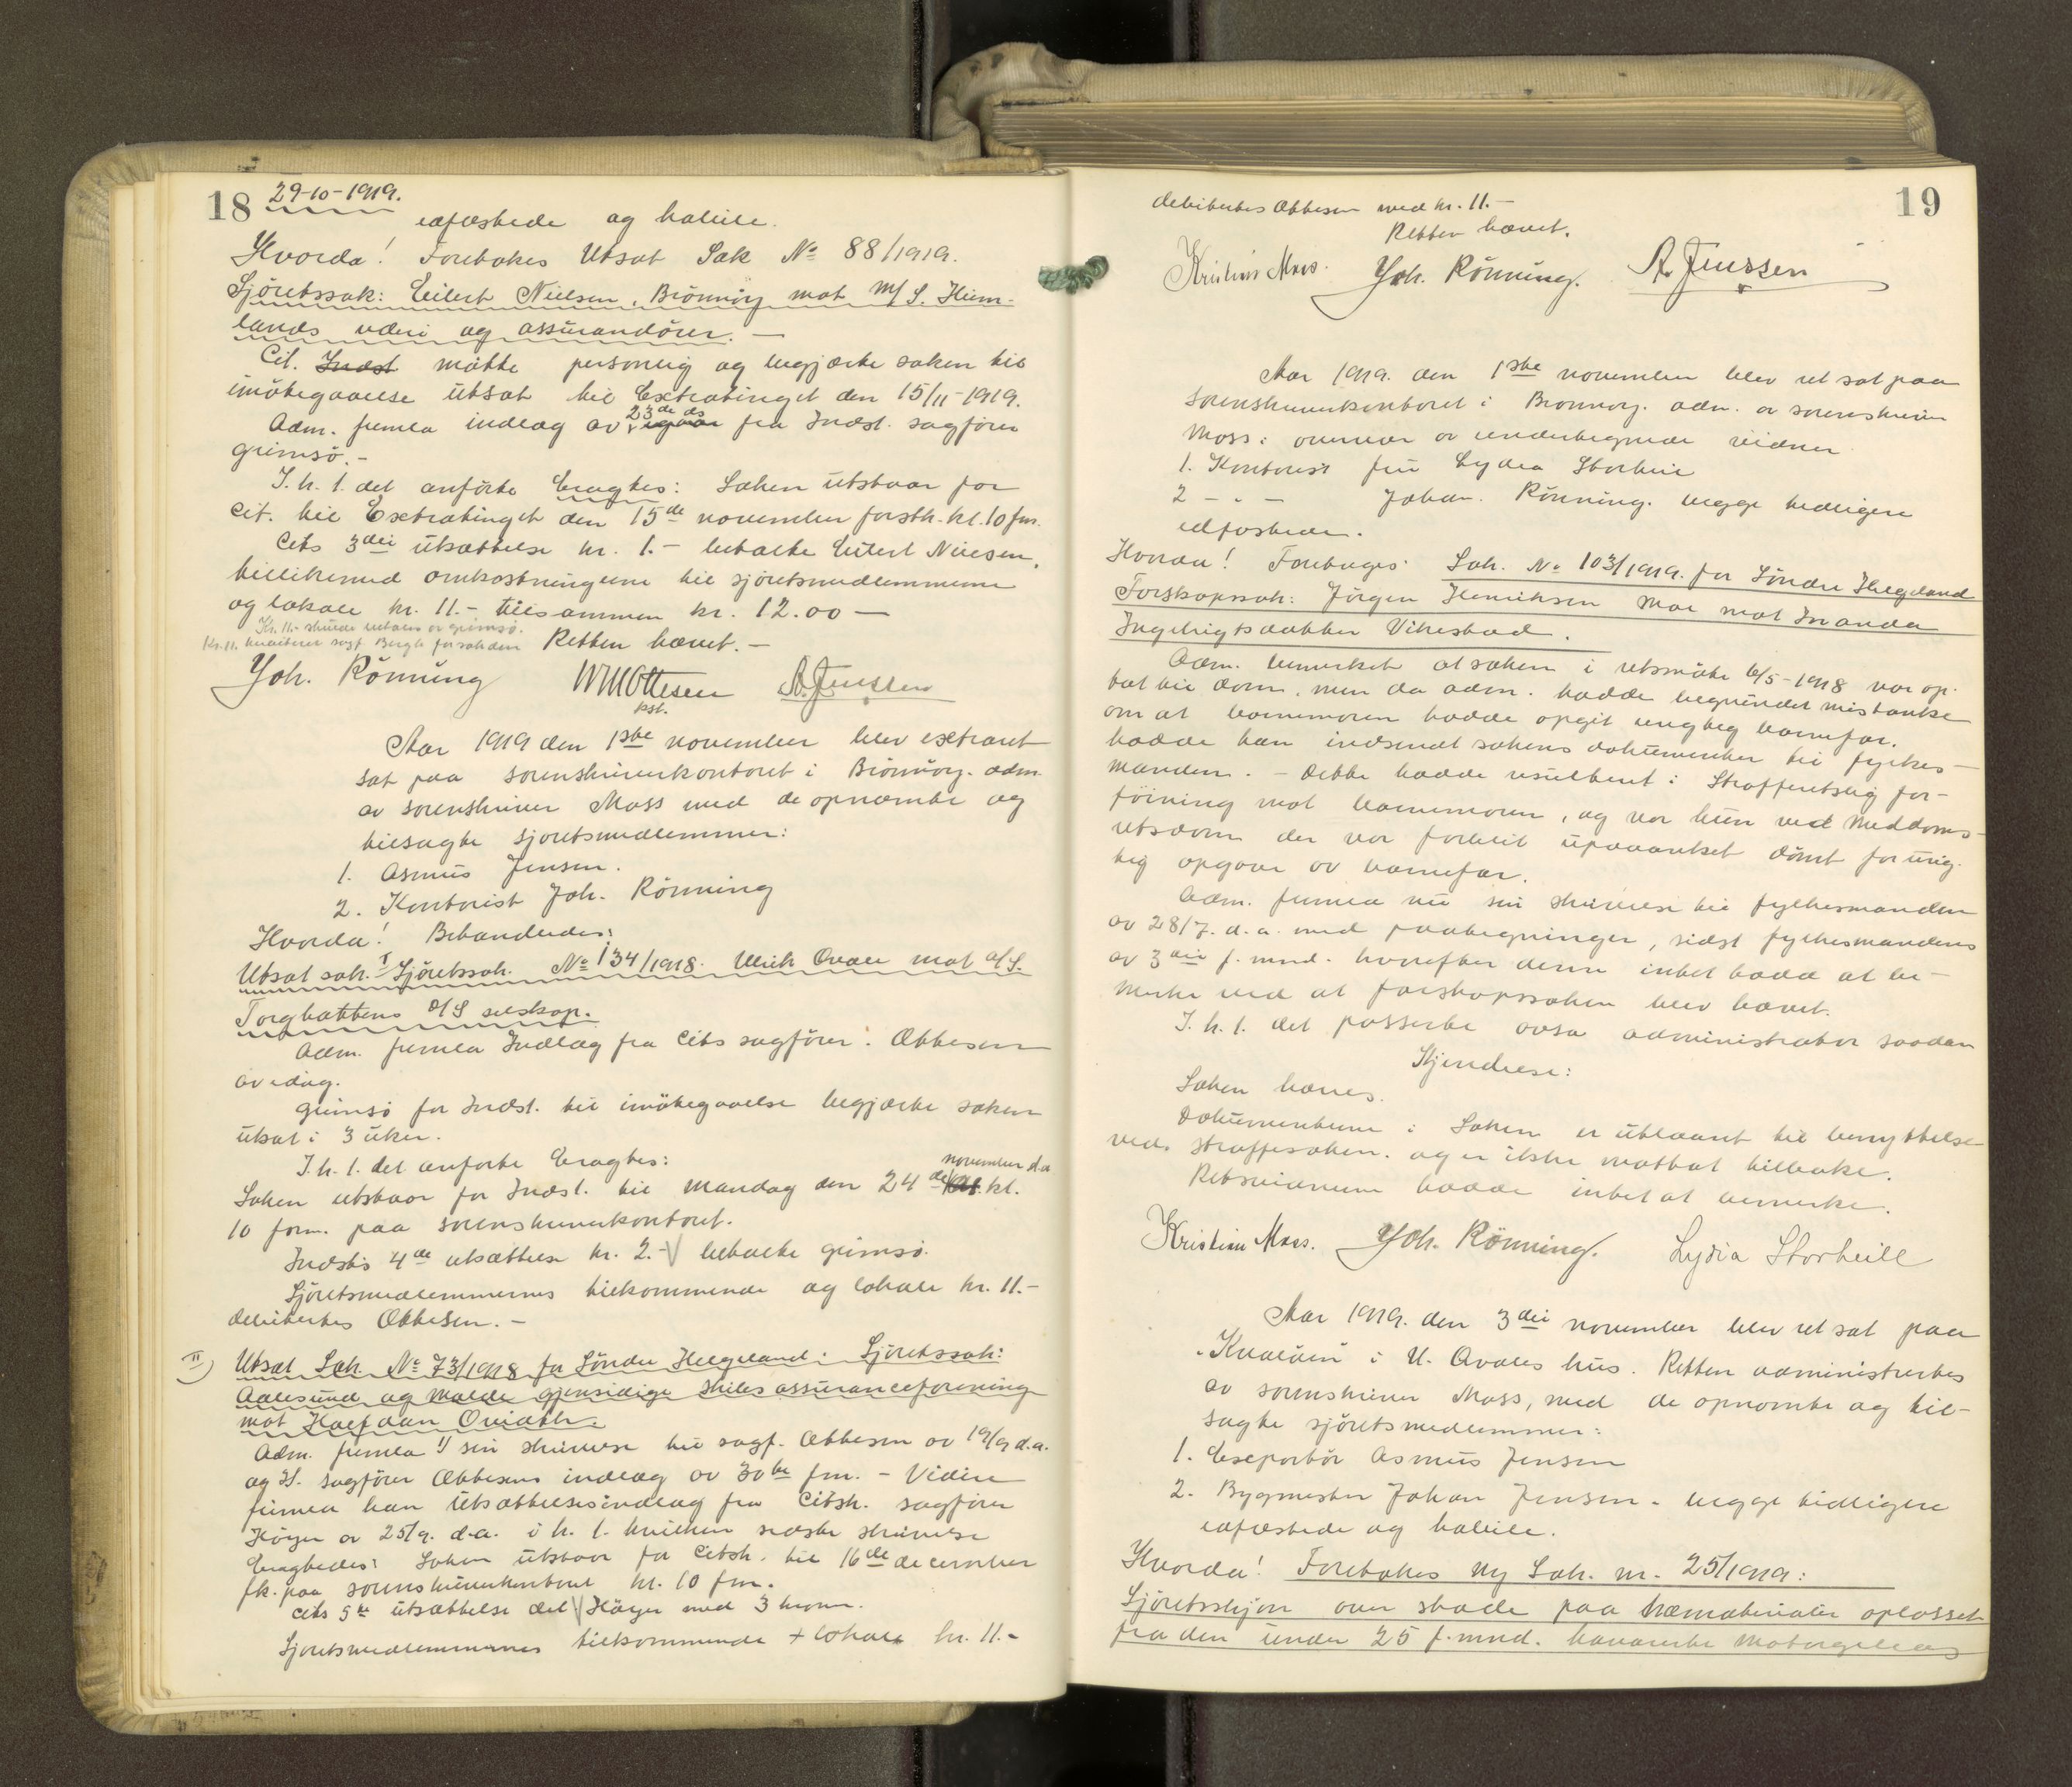 18 29-10-1919.
edfæstede og habile.
Hvorda! Foretokes Utsat Sak No 88/1919.
Sjöretssak: Eilert Nielsen, Brönnöy mot M/S. Heim-
lands rederi og assurandörer. —
Cit. Indst mötte personlig og begjærte saken til
imötegaaelse utsat til Extratinget den 15/11-1919.
Adm. fremla indlæg av 23de ds igaar fra Indst. sagförer
Grimsö.-
I. h. t. det anförte Eragtes: Saken utstaar for
Cit. til Extratinget den 15de november förstk. kl. 10 fm.
Cits 3die utsættelse kr. 1.- betalte Eilert Nielsen,
tillikemed omkostningerne til sjöretsmedlemmerne
og lokale kr. 11.- tilsammen kr. 12.00 —
Kr. 11.- skulde betales av Grimsö.
Kr. 11. krediteres sagf. Bergh for sakden
Retten hævet. —
Joh. Rönning WMOttesen A. Jenssen
kst.
Aar 1919 den 1ste november blev extraret
sat paa sorenskriverkontoret i Brönnöy. adm.
av sorenskriver Moss med de opnævnte og
tilsagte sjöretsmedlemmer:
1. Asmus Jensen.
2. Kontorist Joh. Rönning
Hvorda! Behandledes:
Utsat sak. I Sjöretssak. No 134/1918. Ulrich Qvale mot A/S.
Torghattens D/S selskap.
Adm. fremla Indlæg fra Cits sagförer: Ottesen
av idag.
Grimsö for Indst. til imötegaaelse begjærte saken
utsat i 3 uker.
I. h. t. det anförte Eragtes:
Saken utstaar for Indst. til Mandag den 24de november d.a kl.
10 form. paa sorenskriverkontoret.
Indsts 4de utsættelse kr. 2.- betalte Grimsö.
Sjöretsmedlemmernes tilkommende og lokale kr. 11.-
debitertes Ottesen.-
II) Utsat Sak No 73/1918 for Söndre Helgeland: Sjöretssak:
Aalesund og Molde gjensidige skibsassuranceforening
mot Halfdan Qviath.
Adm. fremla 1/ sin skrivelse til sagf. Ottesen av 19/9 d.a.
og 2/. sagförer Ottesens indlæg av 30te fm. - Videre
fremla han utsættelsesindlæg fra Citsk. sagförer
Höyer av 25/9. d.a. i h. t. hvilken sidste skrivelse
Eragtedes: Saken utstaar for Citsk. til 16de december
fk. paa sorenskriverkontoret kl. 10 fm.
Cits 5te utsættelse deb Höyer med 3 kroner.
Sjöretsmedlemmernes tilkommende + lokale kr. 11.-
19
debitertes Ottesen med kr. 11.-
Retten hævet.
Kristian Moss. Joh. Rönning. A. Jenssen
Aar 1919. den 1ste november blev ret sat paa
sorenskriverkontoret i Brönnöy. adm. av sorenskriver
Moss: overvær av undertegnede vidner
1. Kontorist frk Lydia Storheil
2 - " - Johan. Rönning. begge tidligere
edfæstede.
Hvorda! Foretages Sak. No 103/1919. for Söndre Helgeland
Farskapssak: Jörgen Henriksen Moe mot Inanda
Ingebrigtsdatter Vikestad.
Adm. bemerket at saken i retsmöte 6/5-1918 var op-
tat til dom, men da adm. hadde begrundet mistanke
om at barnemoren hadde opgit urigtig barnefar,
hadde han indsendt sakens dokumenter til fylkes-
manden. - Dette hadde resultert i Strafferetslig for-
föining mot barnemoren, og var hun ved Meddoms-
retsdom der var forblit upaaanket dömt for urig-
tig opgave av barnefar.
Adm. fremla nu sin skrivelse til fylkesmanden
av 28/7. d.a. med paategninger, sidst fylkesmandens
av 3die f. mnd. hvorefter denne intet hadde at be-
merke ved at farskapssaken blev hævet.
I. h. t. det passerte avsa administrator saadan
Kjendelse:
Saken hæves.
Dokumenterne i Saken er utlaant til benyttelse
ved straffesaken. og er ikke mottat tilbake.
Retsvidnerne hadde intet at bemerke.
Kristian Moss. Joh. Rönning. Lydia Storheill
Aar 1919. den 3die november blev ret sat paa
"Kvalöen" i U. Qvales hus. Retten administrertes
av sorenskriver Moss, med de opnævnte og til-
sagte sjöretsmedlemmer:
1. Exportör Asmus Jensen
2. Bygmester Johan Jensen. begge tidligere
edfæstede og habile.
Hvorda! Foretokes Ny Sak. nr. 25/1919:
Sjöretsskjön over skade paa træmaterialer oplosset
fra den under 25 f. mnd. havarerte Motorgaleas